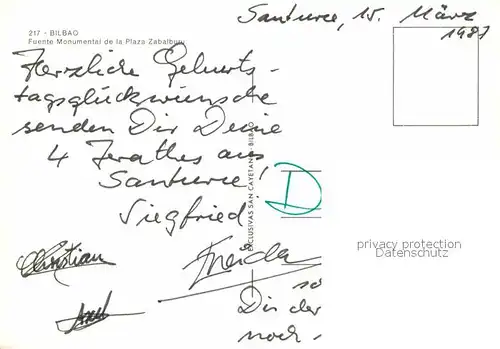 Santurce, 15. März
1987
217 - BILBAO
Fuente Monumental de la Plaza Zabalburu
Herzliche Geburts-
tagsglückwünsche
senden Dir Deine
4 aus
Santurce!
Siegfried
EXCLUSIVAS SAN CAYETANO - BILBAO
D
privacy protection
Datenschutz
Christian
Axel
so
Dir der
noch-